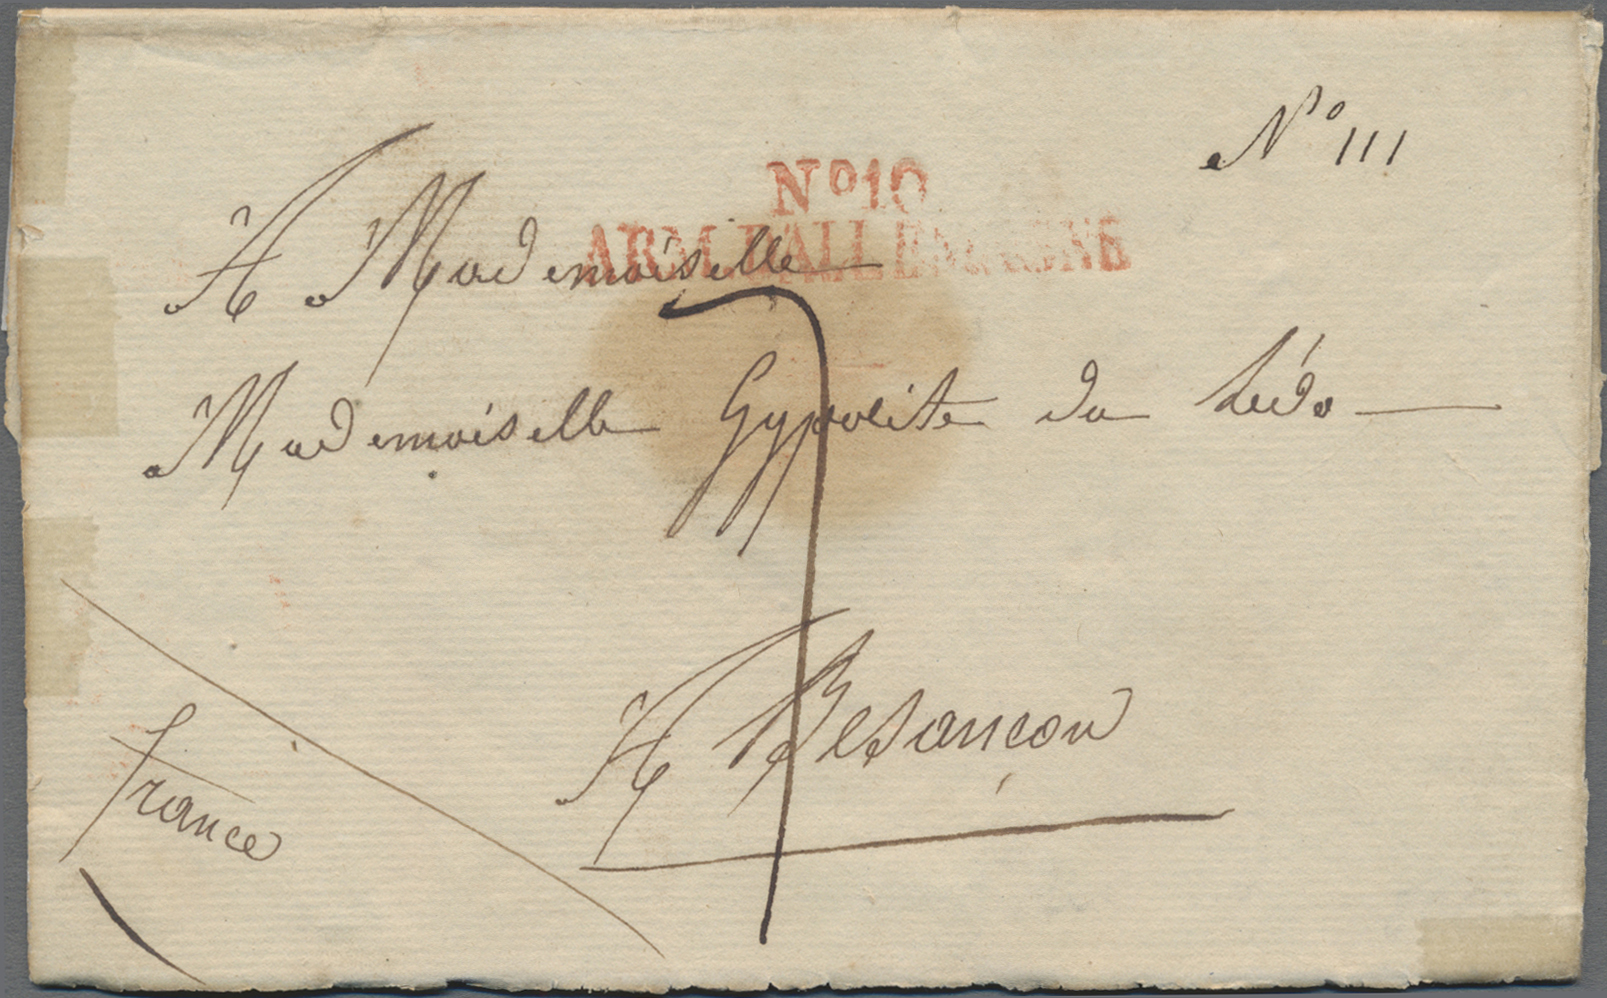 Nº 111
Nº 10
ARM. D'ALLEMAGNE
A Mademoiselle
Mademoiselle Hyppolite du
7
A Besançon
France